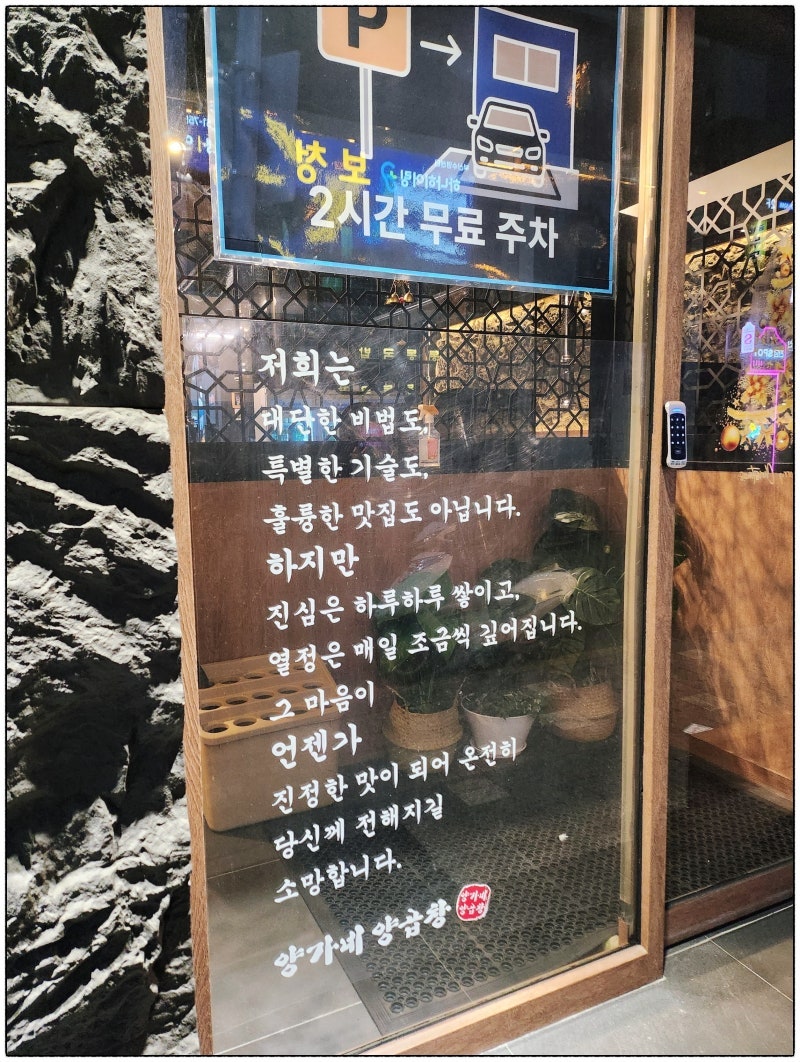 P
2시간 무료 주차
하나히어링
저희는
대단한 비법도,
특별한 기술도,
훌륭한 맛집도 아닙니다.
하지만
진심은 하루하루 쌓이고,
열정은 매일 조금씩 깊어집니다.
그 마음이
언젠가
진정한 맛이 되어 온전히
당신께 전해지길
소망합니다.
양가네 양곱창
양가네
양곱창